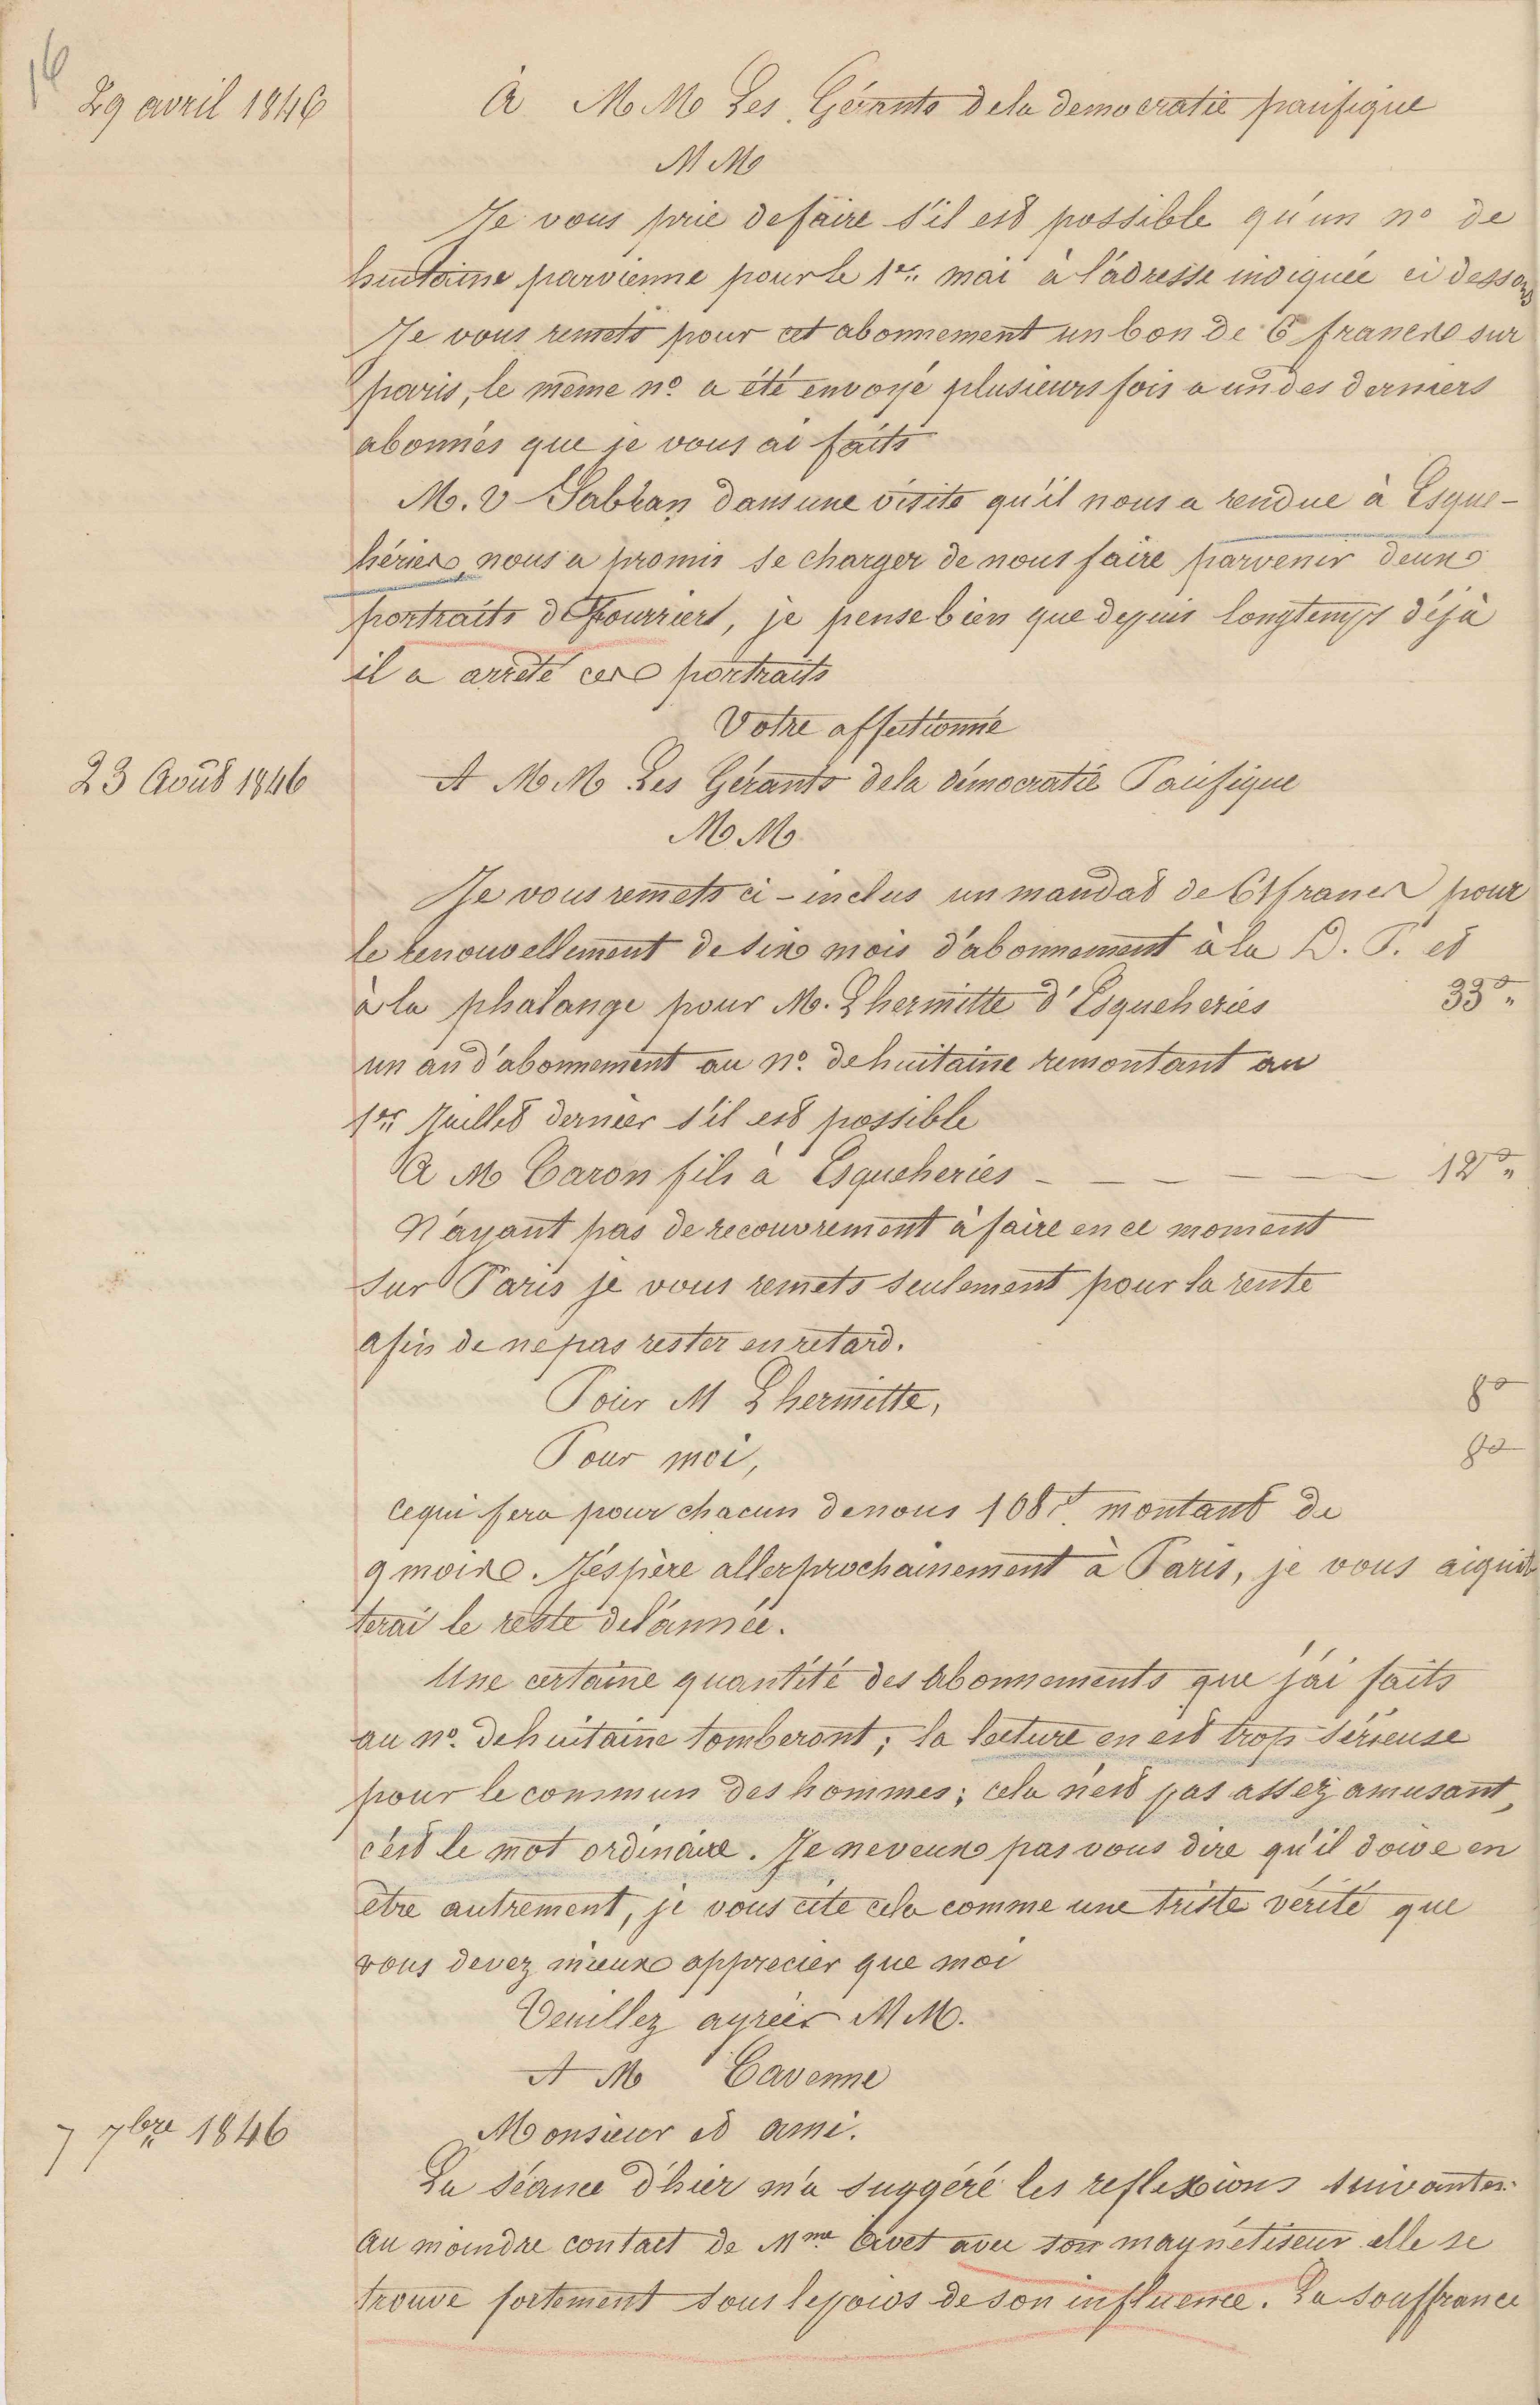 16
29 avril 1846
A M M Les Gérants de la democratie pacifique
M M
Je vous prie de faire s'il est possible qu'un no de
huitaine parvienne pour le 1er. mai à l'adresse indiquée ci dessous
Je vous remets pour cet abonnement un bon de 6 francs sur
paris, le même no a été envoyé plusieurs fois a un des derniers
abonnés que je vous ai faits
M. v Sabran dans une visite qu'il nous a rendue à Esque-
héries nous a promis se charger de nous faire parvenir deux
portraits de Fourriert, je pense bien que depuis longtemps déjà
il a arrêté ces portraits
Votre affectionné
23 Août 1846
A M M Les Gérants de la démocratie Pacifique
M M
Je vous remets ci-inclus un mandat de 61 francs pour
le renouvellement de six mois d'abonnement à la D. P. et
à la phalange pour M. Lhermitte d'Esqueheries
33 "
un an d'abonnement au no. de huitaine remontant au
1er Juillet dernier s'il est possible
A M Caron fils à Esqueheries - - - - - -
12 "
N'ayant pas de recouvrement à faire en ce moment
sur Paris je vous remets seulement pour la rente
afin de ne pas rester en retard.
Pour M Lhermitte,
8
Pour moi,
8
ce qui fera pour chacun de nous 108 f. montant de
9 mois. J'éspère aller prochainement à Paris, je vous aiquit
terai le reste de l'année.
Une certaine quantité des abonnements que j'ai faits
au no. de huitaine tomberont; la lecture en est trop sérieuse
pour le commun des hommes; cela n'est pas assez amusant,
c'est le mot ordinaire. Je ne veux pas vous dire qu'il doive en
être autrement, je vous cite cela comme une triste vérité que
vous devez mieux apprecier que moi
Veuillez agréer M M.
A M Cavenne
7 7bre 1846
Monsieur et ami.
La séance d'hier m'a suggéré les reflexions suivantes.
Au moindre contact de Mme Civet avec son magnétiseur elle se
trouve fortement sous le poids de son influence. La souffrance